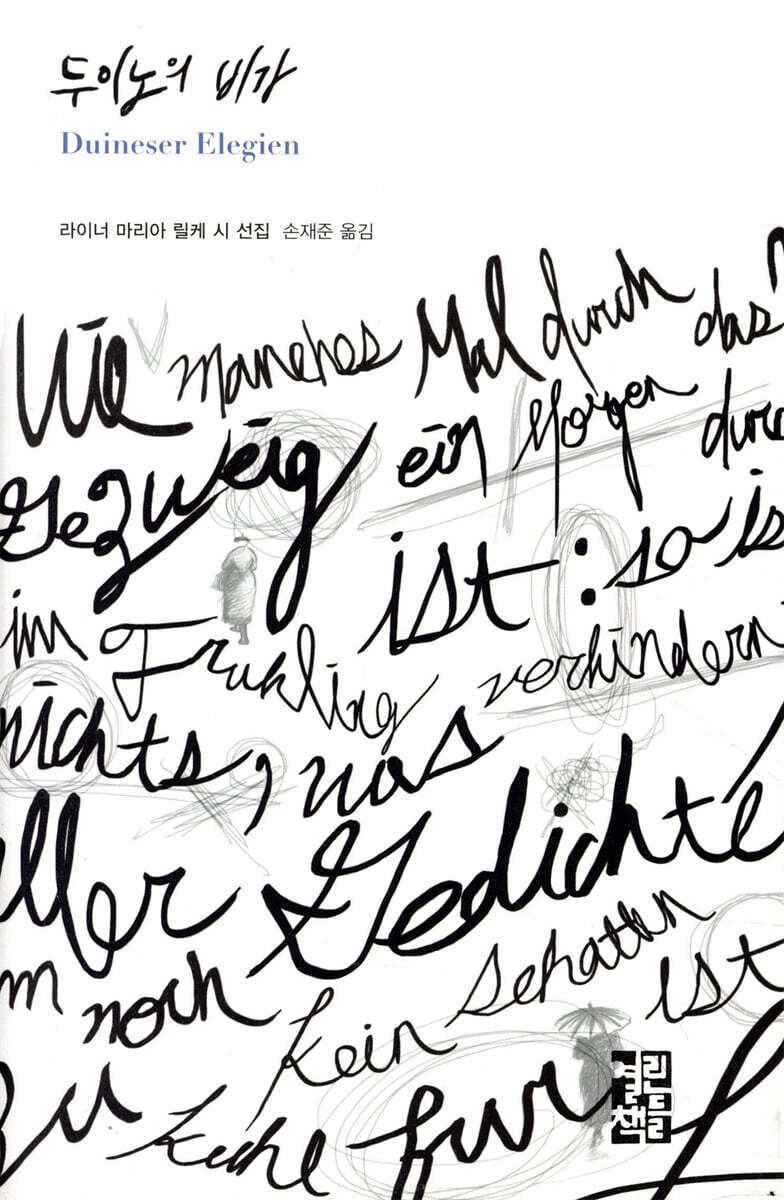 두이노의 비가
Duineser Elegien
라이너 마리아 릴케 시 선집 손재준 옮김
Wie manches Mal durch das
Gezweig ein Morgen durc
ist : so is
im Fruhling verhindern
nichts, was
ller Gedichte
m noch kein Schatten ist
zu kuhl fur
열린책들